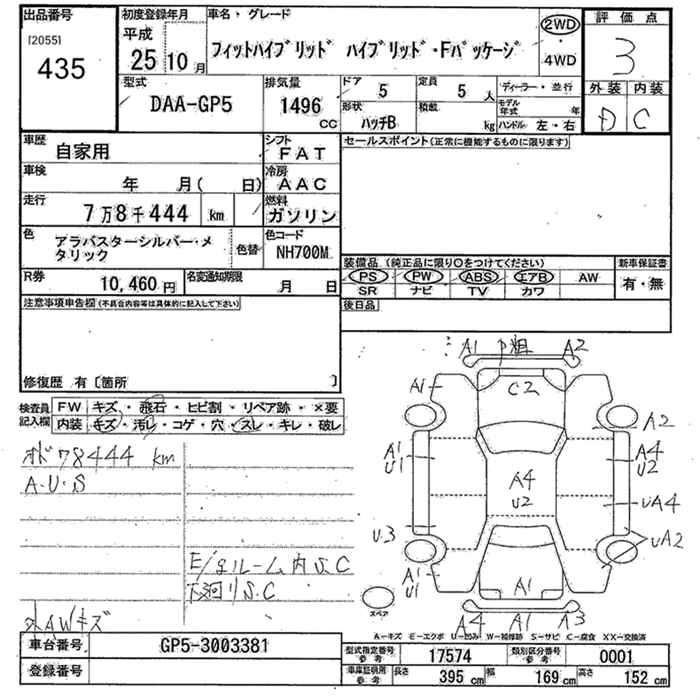 出品番号 初度登録年月 車名・グレード 評価点
[2055] 平成 2WD
435 25 10月 フィットハイブリッド ハイブリッド・Fパッケージ 4WD 3
型式 排気量 ドア 5 定員 5 人 ディーラー・並行 外装 内装
DAA-GP5 1496 CC 形状 ハッチB 積載 kg モデル年式 年 D C
ハンドル 左・右
車歴 自家用 シフト FAT セールスポイント(正常に機能するものに限ります)
車検 年 月( 日) 冷房 AAC
走行 7万8千444 km 燃料 ガソリン
色 アラバスターシルバー・メタリック 色替 色コード NH700M 装備品(純正品に限り○をつけてください) 新車保証書
R券 10,460円 名変通知期限 月 日 PS PW ABS エアB AW 有・無
SR ナビ TV カワ
注意事項申告欄(不具合内容等は具体的に記入して下さい) 後日品
修復歴 有〔箇所 〕
検査員記入欄 FW キズ・飛石・ヒビ割・リペア跡・×要
内装 キズ・汚レ・コゲ・穴・スレ・キレ・破レ
A1 A2
A1 C2 A2
A1 U1 A4 U2
A4 U2 UA4
U3 UA2
A1 U1 A1
A4 A1 A3
スペア
オド78444 km
A・U・S
E/gルーム内S.C
下廻りS.C
AWキズ
A-キズ E-エクボ U-凹み W-補修跡 S-サビ C-腐食 XX-交換済
車台番号 GP5-3003381 型式指定番号 参考 17574 類別区分番号 参考 0001
登録番号 車庫証明用 参考 長さ 395 cm 幅 169 cm 高さ 152 cm